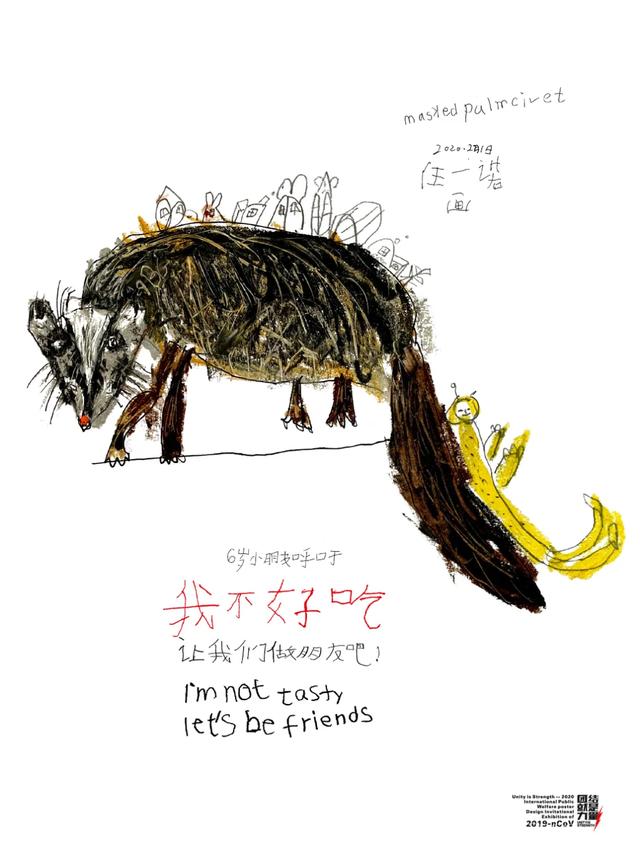 masked palmcivet
2020.2月1日
任一诺
画
6岁小朋友呼口于
我不好吃
让我们做朋友吧!
I'm not tasty
let's be friends
Unity is Strength — 2020
International Public
Welfare poster
Design Invitational
Exhibition of
2019-nCoV
团结就是力量
UNITY IS
STRENGTH